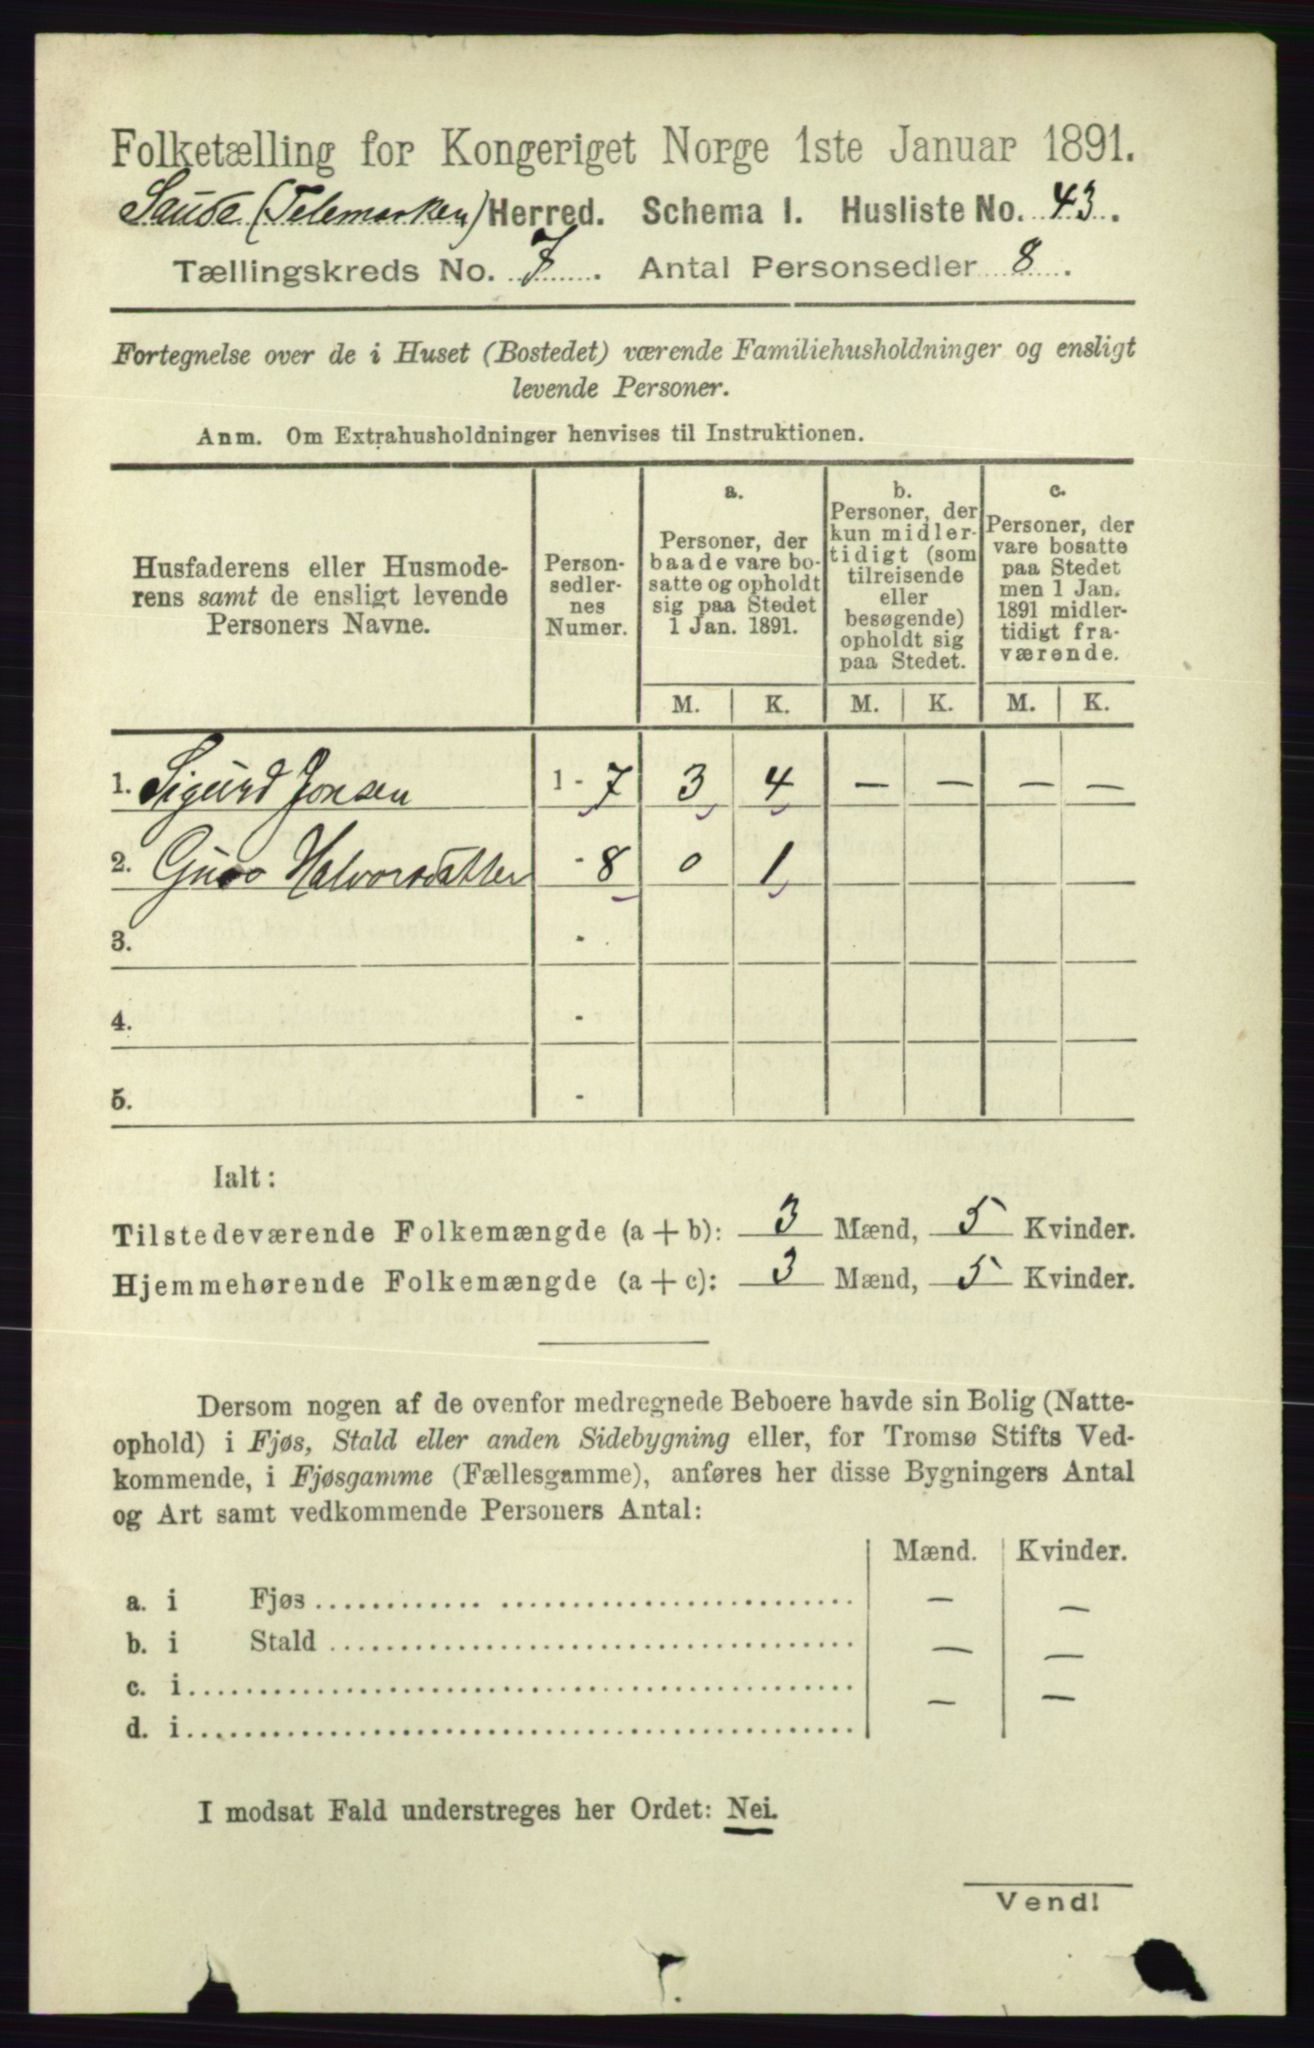 Folketælling for Kongeriget Norge 1ste Januar 1891.
Saude (Telemarken) Herred. Schema I. Husliste No. 43.
Tællingskreds No. 7. Antal Personsedler 8.
Fortegnelse over de i Huset (Bostedet) værende Familiehusholdninger og ensligt
levende Personer.
Anm. Om Extrahusholdninger henvises til Instruktionen.
Husfaderens eller Husmode-
rens samt de ensligt levende
Personers Navne.
Person-
sedler-
nes
Numer.
a.
Personer, der
baade vare bo-
satte og opholdt
sig paa Stedet
1 Jan. 1891.
b.
Personer, der
kun midler-
tidigt (som
tilreisende
eller
besøgende)
opholdt sig
paa Stedet.
c.
Personer, der
vare bosatte
paa Stedet
men 1 Jan.
1891 midler-
tidigt fra-
værende.
M. K. M. K. M. K.
1. Sigurd Jonsen 1 - 7 3 4 — — — —
2. Guro Halvorsdatter - 8 0 1
3. -
4. -
5. -
Ialt:
Tilstedeværende Folkemængde (a + b): 3 Mænd, 5 Kvinder.
Hjemmehørende Folkemængde (a + c): 3 Mænd, 5 Kvinder.
Dersom nogen af de ovenfor medregnede Beboere havde sin Bolig (Natte-
ophold) i Fjøs, Stald eller anden Sidebygning eller, for Tromsø Stifts Ved-
kommende, i Fjøsgamme (Fællesgamme), anføres her disse Bygningers Antal
og Art samt vedkommende Personers Antal:
Mænd. Kvinder.
a. i Fjøs — —
b. i Stald — —
c. i — —
d. i
I modsat Fald understreges her Ordet: Nei.
Vend!